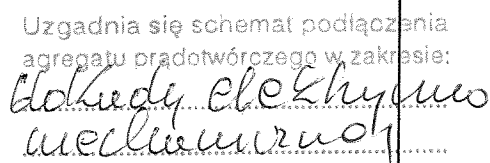 Uzgadnia się schemat podłączenia
agregatu prądotwórczego w zakresie:
blokady elektryczno
mechanicznej